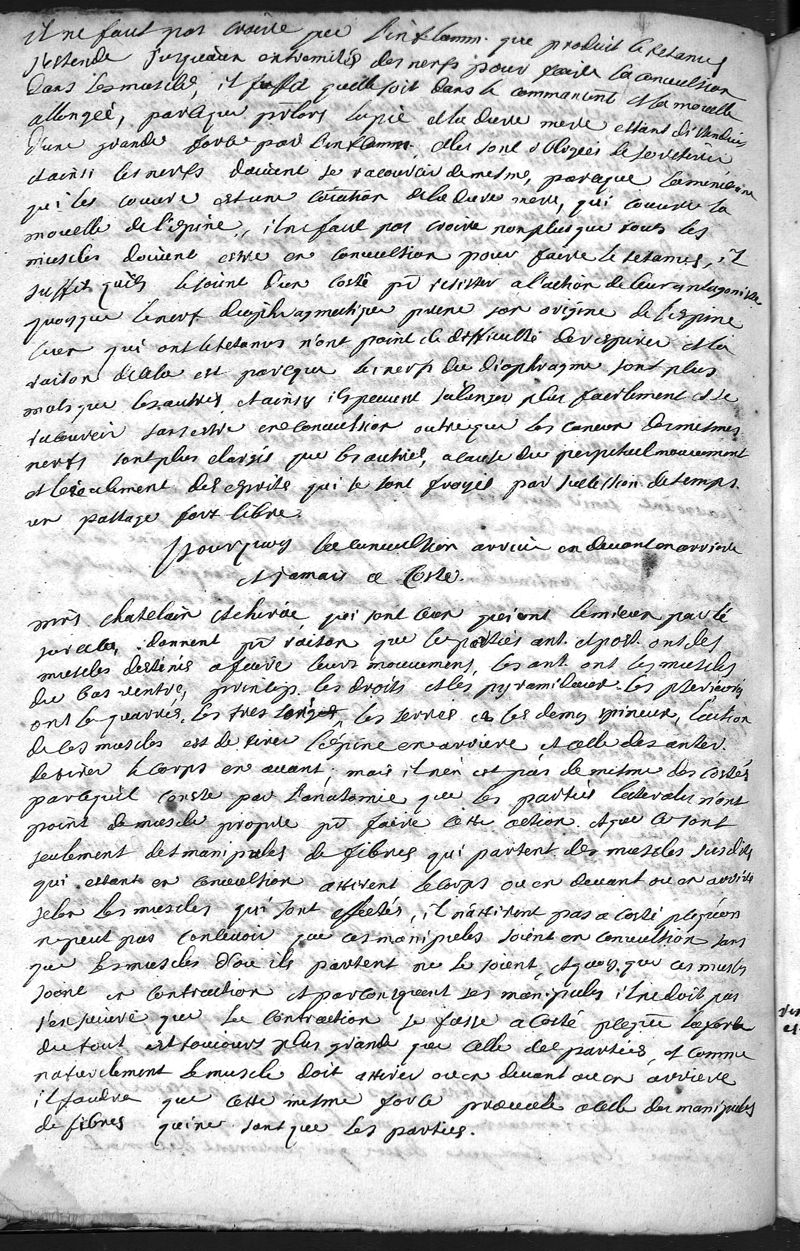 il ne faut pas croire que l'inflamm. que produit le tetanus
s'estende jusqu'aux extremités des nerfs pour faire la convulsion
dans les muscles, il suffit quelle soit dans le commancemt et la mouelle
allongée, parceque pr lors la pie et la dure mere estant distendues
d'une grande force par l'inflamm. elles sont obligées de se retirer
et ainsi les nerfs doivent se racourcir de mesme, parceque la membrane
qui les couvre est une de la dure mere, qui couvre la
mouelle de l'espine, il ne faut pas croire non plus que tous les
muscles doivent estre en convulsion pour faire le tetanus, il
suffit quils le soient d'un costé pr resister a l'action de leurs antagonistes
quoyque le nerf diaphragmatique prene son origine de l'espine
ceux qui ont le tetanus n'ont point de difficulté de respirer et la
raison de cela est parceque les nerfs du diaphragme sont plus
mols que les autres, et ainsy ils peuvent s'alonger plus facilement et se
racourcir sans estre en convulsion outre que les canaux de mesmes
nerfs sont plus elargis que les autres, a cause du perpetuel mouvement
et l'ecoulement des esprits qui se sont frayés par succession de temps
un passage fort libre.
Pourquoy la convulsion arrive en devant en arriere
et jamais a costé.
mrs chatelain et chirac, qui sont ceux qui ont le mieux parlé
sur cela, donnent pr raison que les parties ant. et post. ont des
muscles destinés a faire leurs mouvement, les ant. ont les muscles
du bas ventre, princip. les droits et les pyramidaux. les
ont le quarrés, les tres longs, les sacrés et les demy epineux, l'action
de ces muscles est de tirer l'épine en arriere et celle des anter.
de tirer le corps en avant, mais il n'en est pas de mesme des costés
parcequil conste par l'anatomie que les parties laterales n'ont
point de muscle propre pr faire cette action. et que ce sont
seulement des manipules de fibres qui partent des muscles susdits
qui estant en convulsion attirent le corps ou en devant ou en arriere
selon les muscles qui sont affectés, il n'attirent pas a costé
ne peut pas concevoir que ces manipules soient en convulsion sans
que les muscles d'ou ils partent ne le soient, et quoy que ces muscles
soient en contraction et par consequent les manipules il ne doit pas
s'en suivre que la contraction se fasse a costé la force
du tout est toujours plus grande que celle des parties, et comme
naturelement le muscle doit attirer ou en devant ou en arriere
il faudra que cette mesme force a celle des manipules
de fibres qui ne sont que les parties.